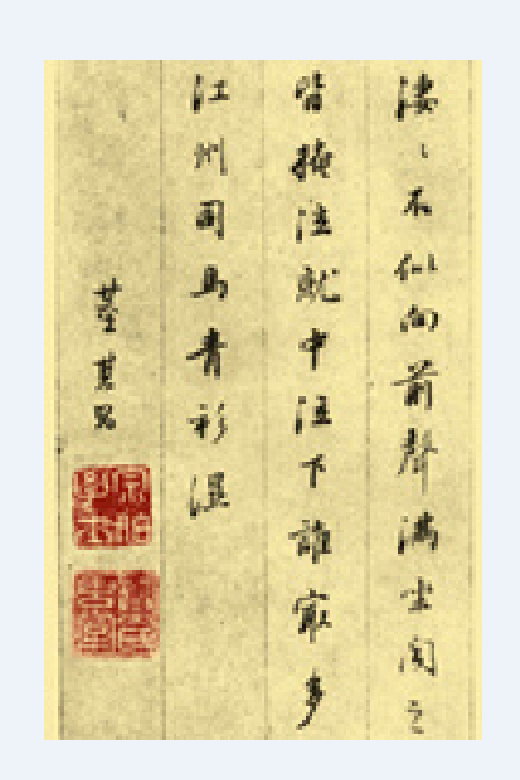 淒〻不似向前聲滿坐聞之
皆掩泣就中泣下誰㝡多
江州司馬青衫濕
董其昌